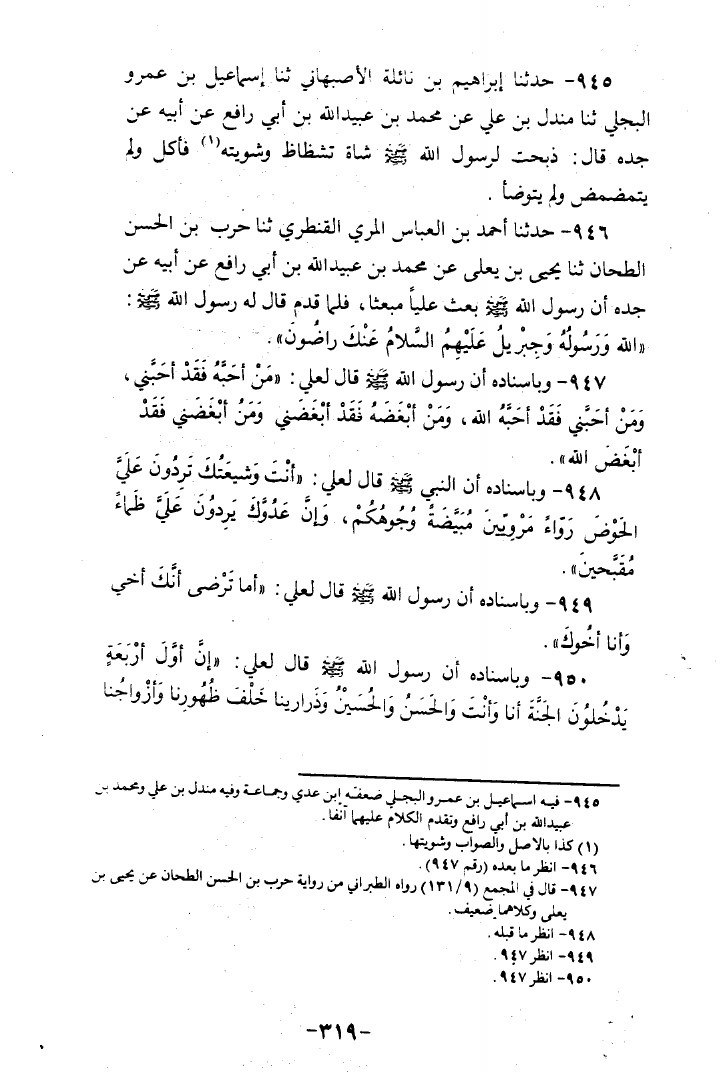 ٩٤٥- حدثنا إبراهيم بن نائلة الأصبهاني ثنا إسماعيل بن عمرو
البجلي ثنا مندل بن علي عن محمد بن عبيدالله بن أبي رافع عن أبيه عن
جده قال: ذبحت لرسول الله ﷺ شاة تشظاظ وشويته(١) فأكل ولم
يتمضمض ولم يتوضأ .
٩٤٦- حدثنا أحمد بن العباس المري القنطري ثنا حرب بن الحسن
الطحان ثنا يحيى بن يعلى عن محمد بن عبيدالله بن أبي رافع عن أبيه عن
جده أن رسول الله ﷺ بعث علياً مبعثا، فلما قدم قال له رسول الله ﷺ :
«الله وَرَسُولُهُ وَجِبْرِيلُ عَلَيْهِمُ السَّلامُ عَنْكَ راضُونَ».
٩٤٧- وباسناده أن رسول الله ﷺ قال لعلي: «مَنْ أحَبَّهُ فَقَدْ أحَبَّني،
وَمَنْ أحَبَّني فَقَدْ أحَبَّهُ الله، وَمَنْ أبْغَضَهُ فَقَدْ أبْغَضَني وَمَنْ أبْغَضَني فَقَدْ
أبْغَضَ الله».
٩٤٨- وباسناده أن النبي ﷺ قال لعلي: «أنْتَ وَشيعَتُكَ تَرِدُونَ عَلَيَّ
الحَوْضَ رَوّاءً مَرْوِيّينَ مُبَيَّضَةً وُجُوهُكُمْ، وَإنَّ عَدُوَّكَ يَرِدُونَ عَلَيَّ ظَماءً
مُقَبَّحينَ».
٩٤٩- وباسناده أن رسول الله ﷺ قال لعلي: «أما تَرْضى أنَّكَ أخي
وَأنا أخُوكَ».
٩٥٠- وباسناده أن رسول الله ﷺ قال لعلي: «إنَّ أوَّلَ أرْبَعَةٍ
يَدْخُلُونَ الجَنَّةَ أنا وَأنْتَ وَالحَسَنُ وَالحُسَيْنُ وَذَرارينا خَلْفَ ظُهُورِنا وَأزْواجُنا
٩٤٥- فيه اسماعيل بن عمرو البجلي ضعفه ابن عدي وجماعة وفيه مندل بن علي ومحمد بن
عبيدالله بن أبي رافع وتقدم الكلام عليهما آنفا.
(١) كذا بالاصل والصواب وشويتها.
٩٤٦- انظر ما بعده (رقم ٩٤٧).
٩٤٧- قال في المجمع (١٣١/٩) رواه الطبراني من رواية حرب بن الحسن الطحان عن يحيى بن
يعلى وكلاهما ضعيف.
٩٤٨- انظر ما قبله.
٩٤٩- انظر ٩٤٧.
٩٥٠- انظر ٩٤٧.
-٣١٩-